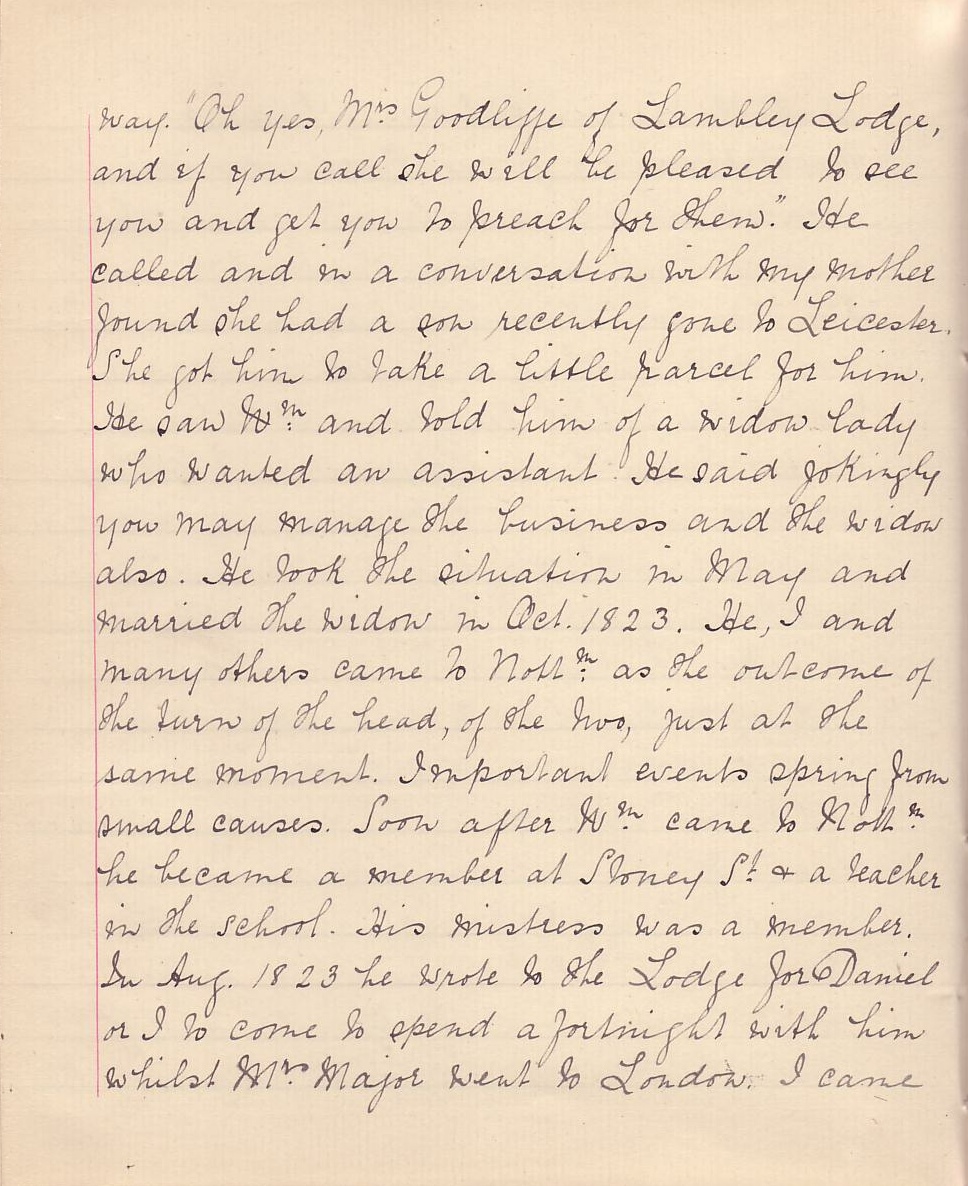 way. "Oh yes, Mrs Goodliffe of Lambley Lodge,
and if you call she will be pleased to see
you and get you to preach for them." He
called and in a conversation with my mother
found she had a son recently gone to Leicester.
She got him to take a little parcel for him.
He saw Wm and told him of a widow lady
who wanted an assistant. He said jokingly
you may manage the business and the widow
also. He took the situation in May and
married the widow in Oct. 1823. He, I and
many others came to Nottm as the outcome of
the turn of the head, of the two, just at the
same moment. Important events spring from
small causes. Soon after Wm came to Nottm
he became a member at Stoney St. & a teacher
in the school. His mistress was a member.
In Aug. 1823 he wrote to the Lodge for Daniel
or I to come to spend a fortnight with him
whilst Mrs. Major went to London. I came